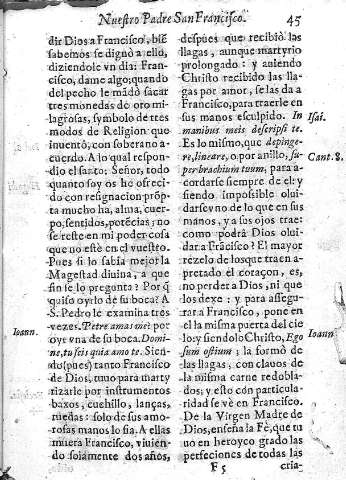 Nuestro Padre San Francisco. 45
dir Dios a Francisco, biẽ
sabemos se dignò a ello,
diziendole vn dia: Fran-
cisco, dame algo; quando
del pecho le mãdò sacar
tres monedas de oro mi-
lagrosas, symbolo de tres
modos de Religion que
inuentò, con soberano a-
cuerdo. A lo qual respon-
dio el santo: Señor, todo
quanto soy os he ofreci-
do con resignacion pròp-
ta mucho ha, alma, cuer-
po, sentidos, potẽcias; no
se reste en mi poder cosa
que no estè en el vuestro.
Pues si lo sabia mejor la
Magestad diuina, a que
fin se lo pregunta? Por q̃
quiso oyrlo de su boca? A
S. Pedro le examina tres
Ioann. vezes. Petre amas me? por
oyr vna de su boca. Domi-
ne, tu scis quia amo te. Sien-
do (pues) tanto Francisco
de Dios, tuuo para marty
rizarle por instrumentos
baxos, cuchillo, lanças,
ruedas: solo de sus amo-
rosas manos lo fia. A ellas
muera Francisco, viuien-
do solamente dos años,
despues que recibiò las
llagas, aunque martyrio
prolongado: y auiendo
Christo recibido las lla-
gas por amor, se las da a
Francisco, para traerle en
sus manos esculpido. In Isai.
manibus meis descripsi te.
Es lo mismo, que depinge-
re, lineare, o por anillo, su- Cant. 8.
per brachium tuum, para a-
cordarse siempre de el: y
siendo impossible olui-
darse vno de lo que en sus
manos, y a sus ojos trae:
como podrà Dios olui-
dar a Frãcisco? El mayor
rezelo de los que traen a-
pretado el coraçon, es,
no perder a Dios, ni que
los dexe: y para assegu-
rar a Francisco, pone en
el la misma puerta del cie
lo; y siendolo Christo, Ego Ioann
sum ostium; la formò de
las llagas, con clauos de
la misma carne redobla-
dos; y esto con particula-
ridad se vè en Francisco.
De la Virgen Madre de
Dios, enseña la Fè, que tu
uo en heroyco grado las
perfecciones de todas las
F 5 cria-